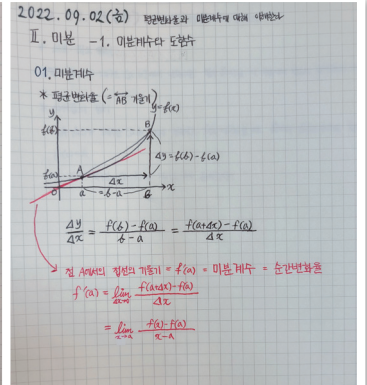 2022.09.02(금) 평균변화율과 미분계수에 대해 이해한다
Ⅱ. 미분 -1. 미분계수와 도함수
01. 미분계수
* 평균변화율 (= AB 기울기)
y
y=f(x)
f(b)
B
Δy=f(b)-f(a)
f(a)
A
Δx
O
a
=b-a
b
x
Δy/Δx = f(b)-f(a)/b-a = f(a+Δx)-f(a)/Δx
점 A에서의 접선의 기울기 = f'(a) = 미분계수 = 순간변화율
f'(a) = lim Δx→0 f(a+Δx)-f(a)/Δx
= lim x→a f(x)-f(a)/x-a